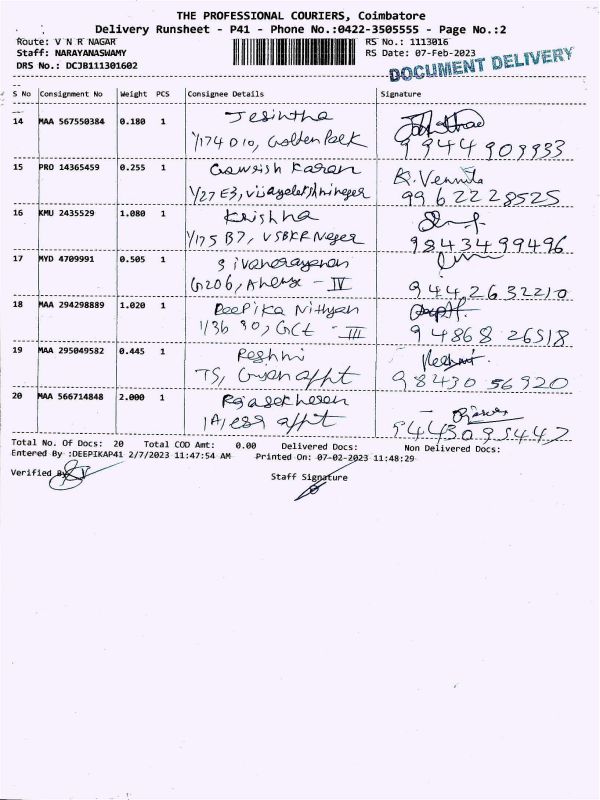 THE PROFESSIONAL COURIERS, Coimbatore
Delivery Runsheet - P41 - Phone No.:0422-3505555 - Page No.:2
Route: V N R NAGAR
RS No.: 1113016
Staff: NARAYANASWAMY
RS Date: 07-Feb-2023
DRS No.: DCJB111301602
DOCUMENT DELIVERY
S No Consignment No Weight PCS Consignee Details Signature
14 MAA 567550384 0.180 1 Jesintha
1/174 D10, Golten Park
9944909933
15 PRO 14365459 0.255 1 Gowrish Karan K. Vennila
1/27 E3, Vijayalakshminager 9962228525
16 KMU 2435529 1.080 1 Krishna
1/175 B7, VSBKR Nager 9843499496
17 MYD 4709991 0.505 1 Sivanarayanan
G206, - IV 9442632210
18 MAA 294298889 1.020 1 Deepika Nithyan
1/3b 30, GCT - III 94868 26518
19 MAA 295049582 0.445 1 Reshmi Reshmi
T5, appt 98430 56920
20 MAA 566714848 2.000 1 Rajasekheran
appt 9443095447
Total No. Of Docs: 20 Total COD Amt: 0.00 Delivered Docs: Non Delivered Docs:
Entered By :DEEPIKAP41 2/7/2023 11:47:54 AM Printed On: 07-02-2023 11:48:29
Verified By
Staff Signature